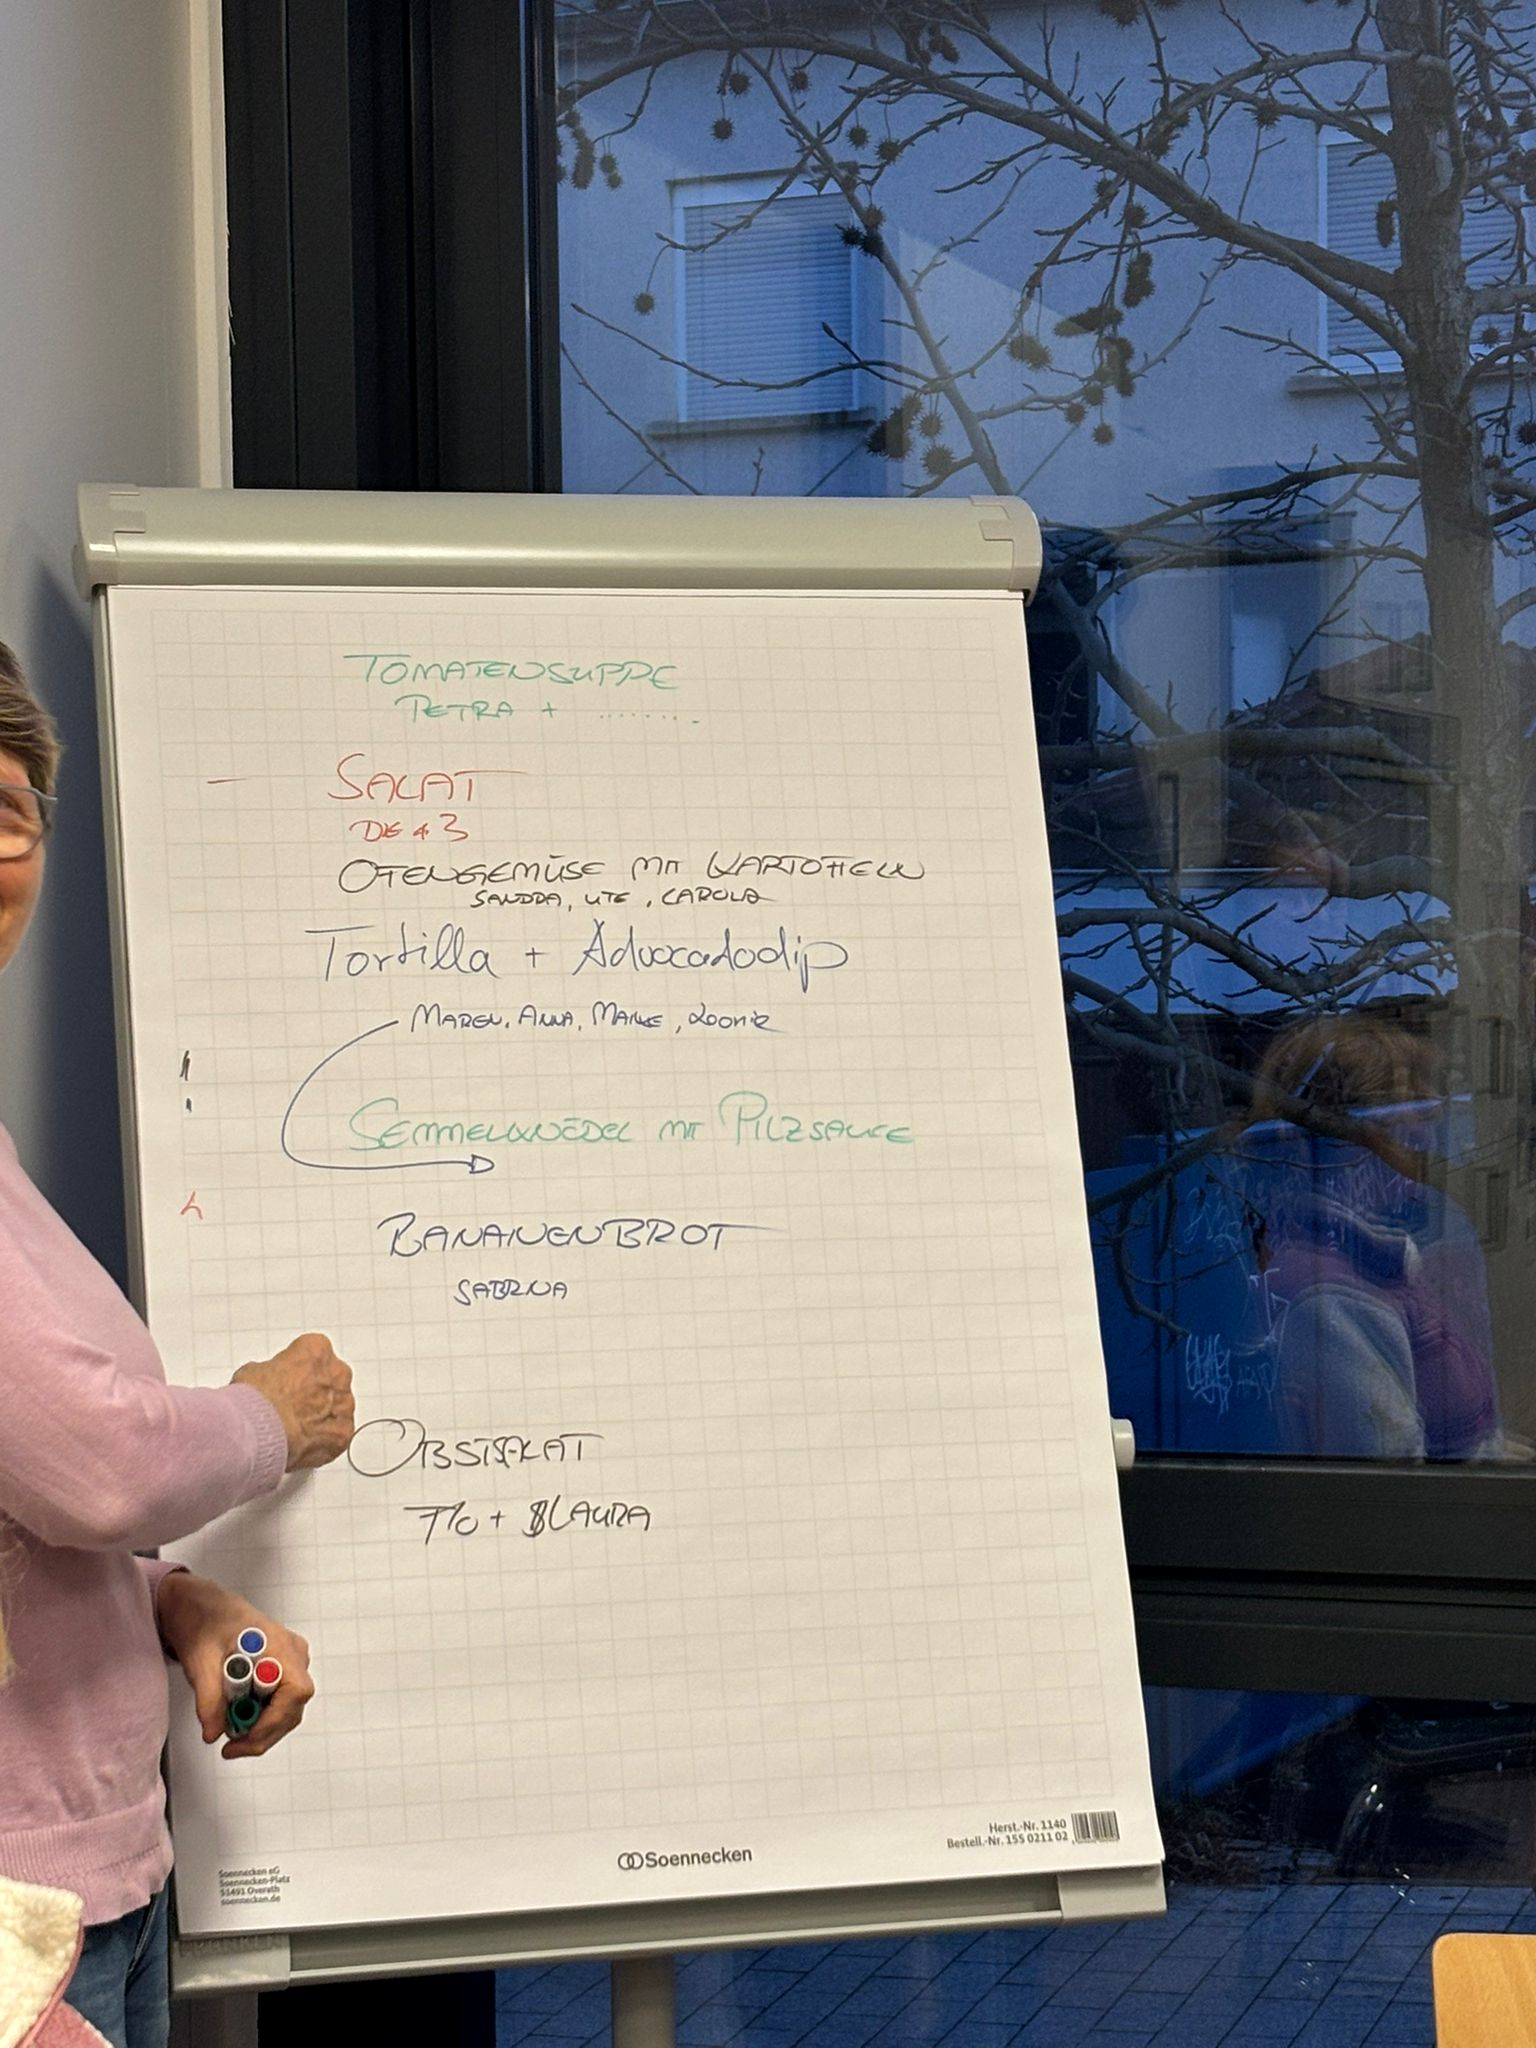 TOMATENSUPPE
PETRA + ........
– SALAT
DIE 3
OFENGEMÜSE MIT KARTOFFELN
SANDRA, UTE, CAROLA
Tortilla + Advocadodip
MAREN, ANNA, MAIKE,
SEMMELKNÖDEL MIT PILZSAUCE
BANANENBROT
SABRINA
OBSTSALAT
+ LAURA
Herst.-Nr. 1140
Bestell.-Nr. 155 0211 02
Soennecken
Soennecken eG
Soennecken-Platz
51491 Overath
soennecken.de